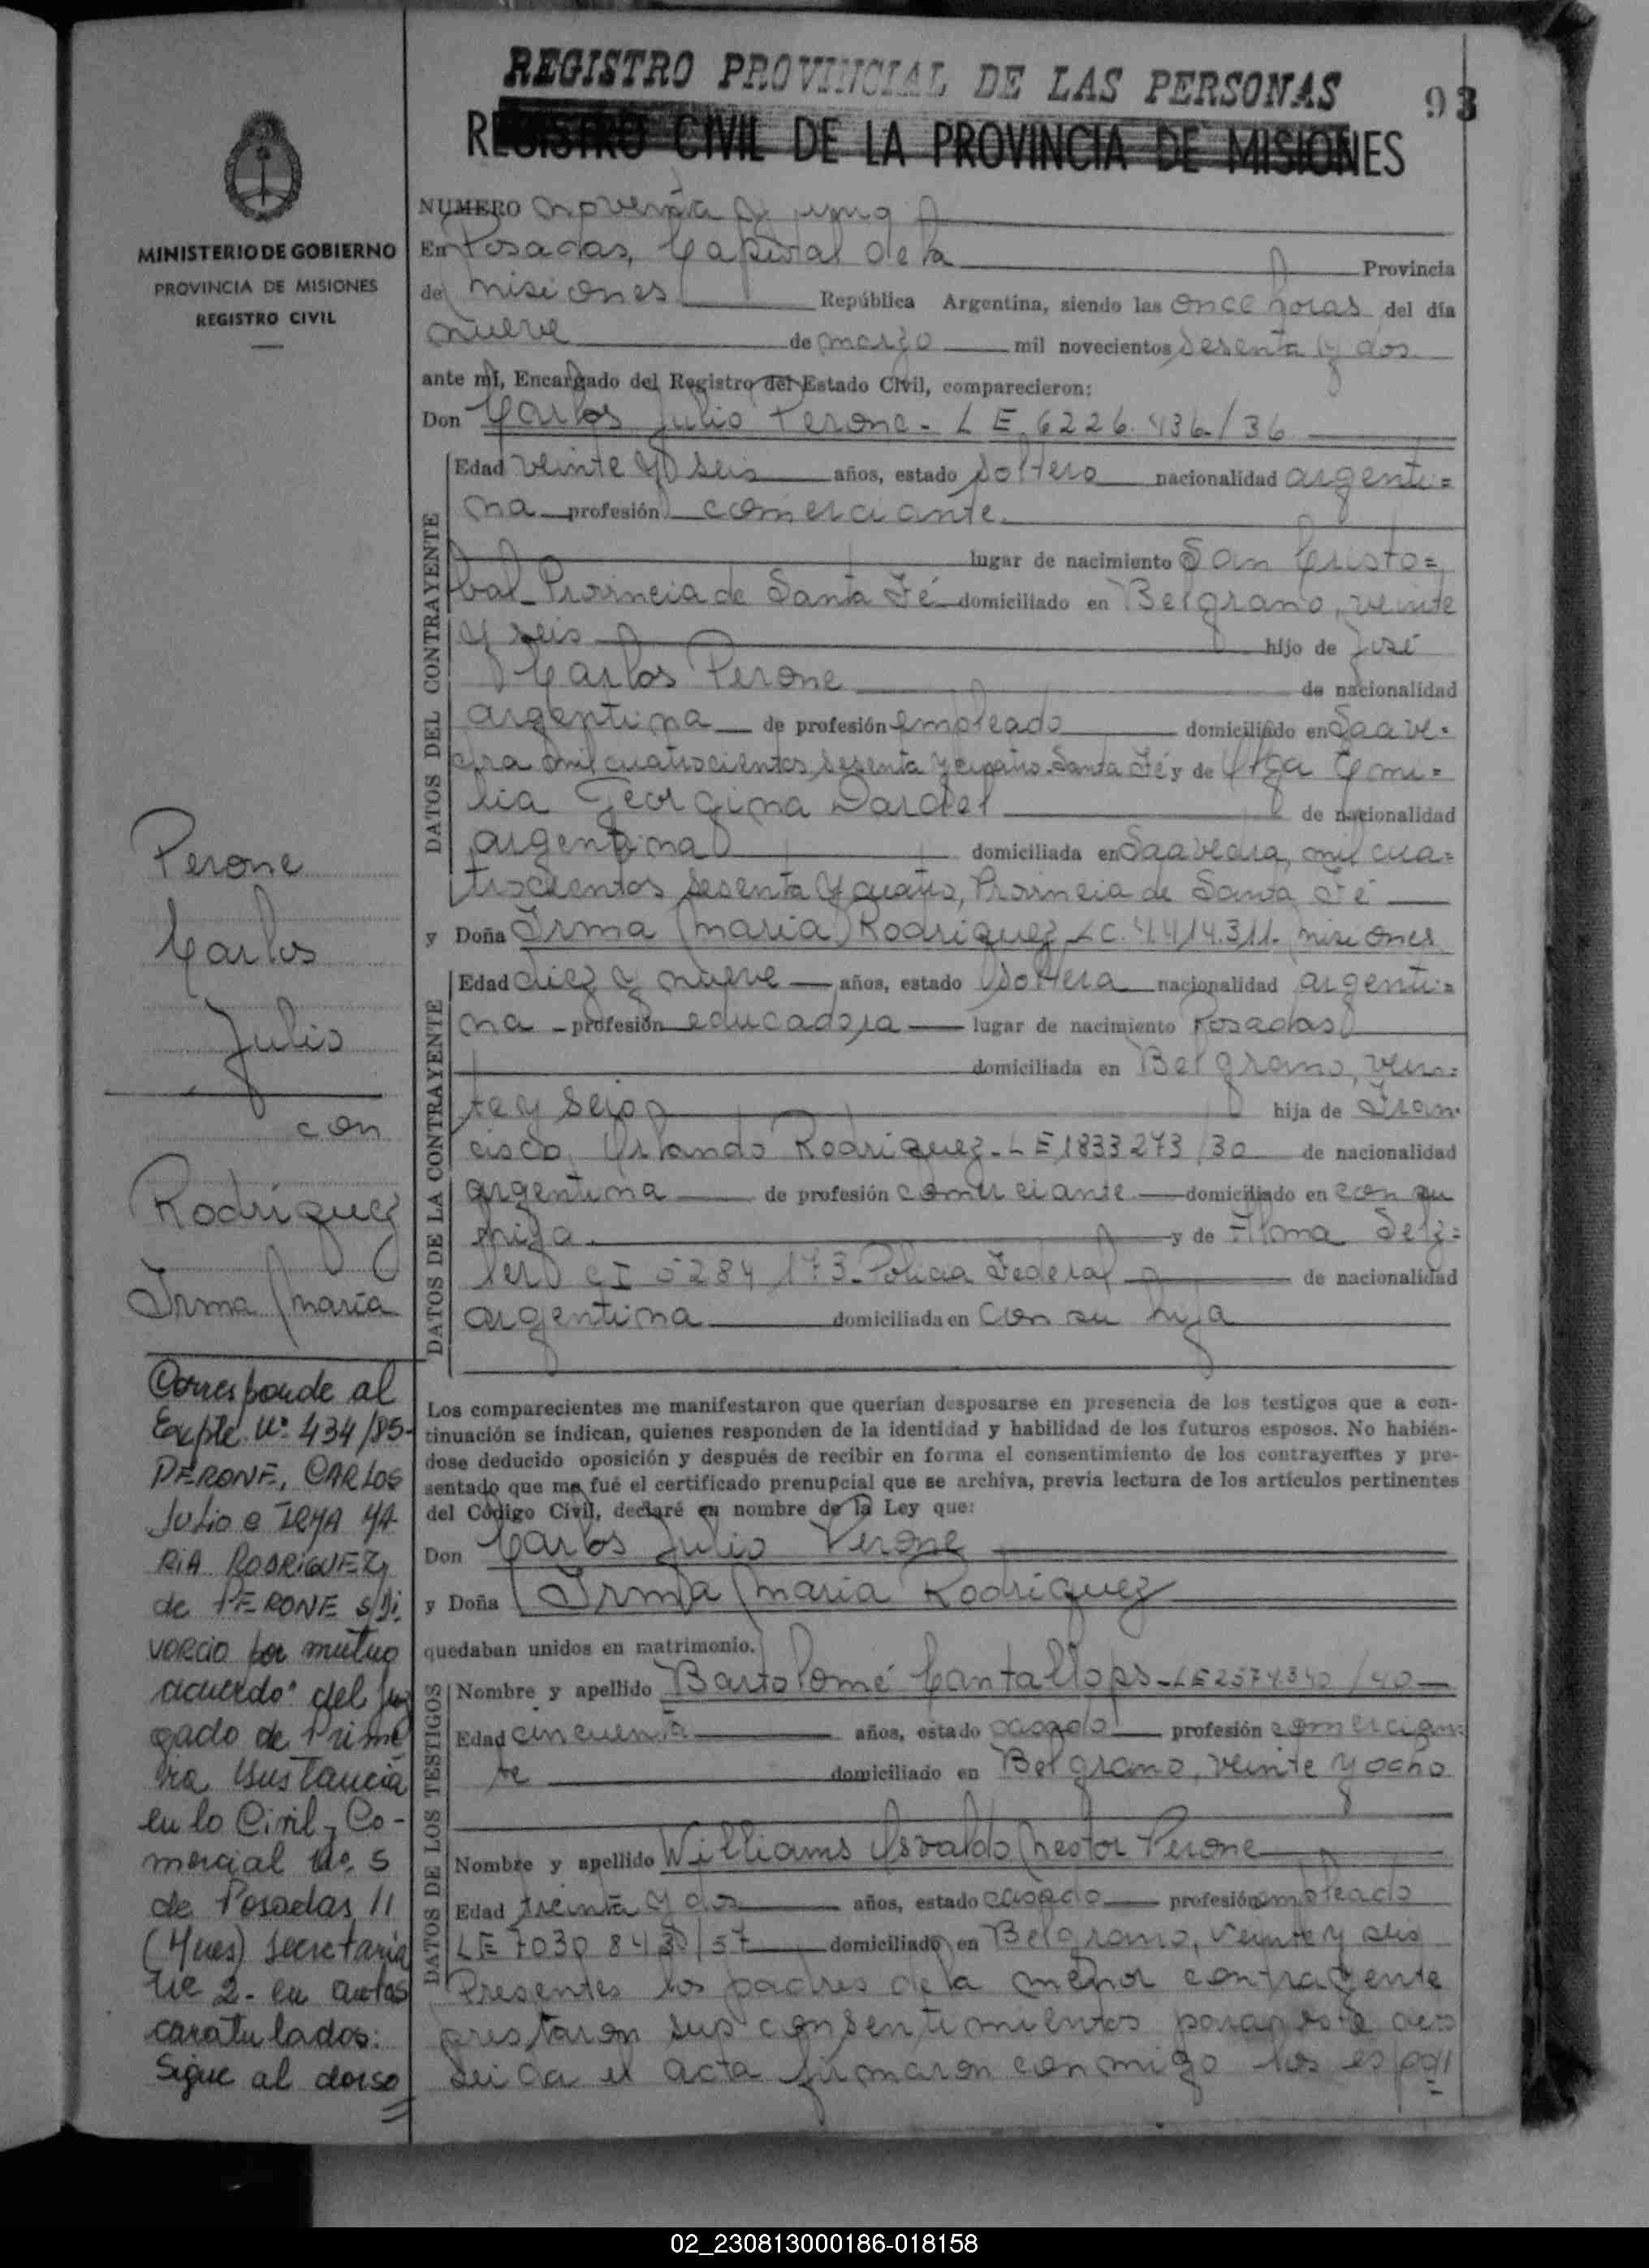 REGISTRO PROVINCIAL DE LAS PERSONAS
93
REGISTRO CIVIL DE LA PROVINCIA DE MISIONES
MINISTERIO DE GOBIERNO
PROVINCIA DE MISIONES
REGISTRO CIVIL
NUMERO noventa y uno
En Posadas, Capital de la Provincia
de misiones República Argentina, siendo las once horas del día
nueve de marzo mil novecientos sesenta y dos
ante mí, Encargado del Registro del Estado Civil, comparecieron:
Don Carlos Julio Perone - LE 6226.436/36
DATOS DEL CONTRAYENTE
Edad veinte y seis años, estado soltero nacionalidad argenti=
na profesión comerciante
lugar de nacimiento San Cristo=
bal - Provincia de Santa Fé domiciliado en Belgrano, veinte
y seis hijo de José
Carlos Perone de nacionalidad
argentina de profesión empleado domiciliado en Saave=
dra mil cuatrocientos sesenta y cuatro Santa Fé y de Olga Emi=
lia Georgina Dardel de nacionalidad
argentina domiciliada en Saavedra, mil cua=
trocientos sesenta y cuatro, Provincia de Santa Fé
y Doña Irma Maria Rodriguez LC. 4.414.311. misiones
DATOS DE LA CONTRAYENTE
Edad diez y nueve años, estado soltera nacionalidad argenti=
na profesión educadora lugar de nacimiento Posadas
domiciliada en Belgrano, vein=
te y seis hija de Fran
cisco Orlando Rodriguez - LE 1833273/30 de nacionalidad
argentina de profesión comerciante domiciliado en con su
hija y de Alma Selz=
ler CI 5284173 - Policia Federal de nacionalidad
argentina domiciliada en con su hija
Los comparecientes me manifestaron que querían desposarse en presencia de los testigos que a con-
tinuación se indican, quienes responden de la identidad y habilidad de los futuros esposos. No habién-
dose deducido oposición y después de recibir en forma el consentimiento de los contrayentes y pre-
sentado que me fué el certificado prenupcial que se archiva, previa lectura de los artículos pertinentes
del Código Civil, declaré en nombre de la Ley que:
Don Carlos Julio Perone
y Doña Irma Maria Rodriguez
quedaban unidos en matrimonio.
DATOS DE LOS TESTIGOS
Nombre y apellido Bartolomé Cantallops - LE 2574340/40
Edad cincuenta años, estado casado profesión comercian=
te domiciliado en Belgrano, veinte y ocho
Nombre y apellido Williams Osvaldo Nestor Perone
Edad treinta y dos años, estado casado profesión empleado
LE 7030843/57 domiciliado en Belgrano, veinte y seis
Presentes los padres de la menor contrayente
prestaron sus consentimientos para este acto
leida el acta firmaron conmigo los espo
Perone
Carlos
Julio
con
Rodríguez
Irma Maria
Corresponde al
Expte. Nº 434/85-
PERONE, CARLOS
Julio e IRMA MA
RIA RODRIGUEZ
de PERONE s/Di
vorcio por mutuo
acuerdo" del Juz
gado de Prime
ra Instancia
en lo Civil y Co-
mercial Nº 5
de Posadas
(Mnes) secretaria
Nº 2- en autos
caratulados:
Sigue al dorso
02_230813000186-018158